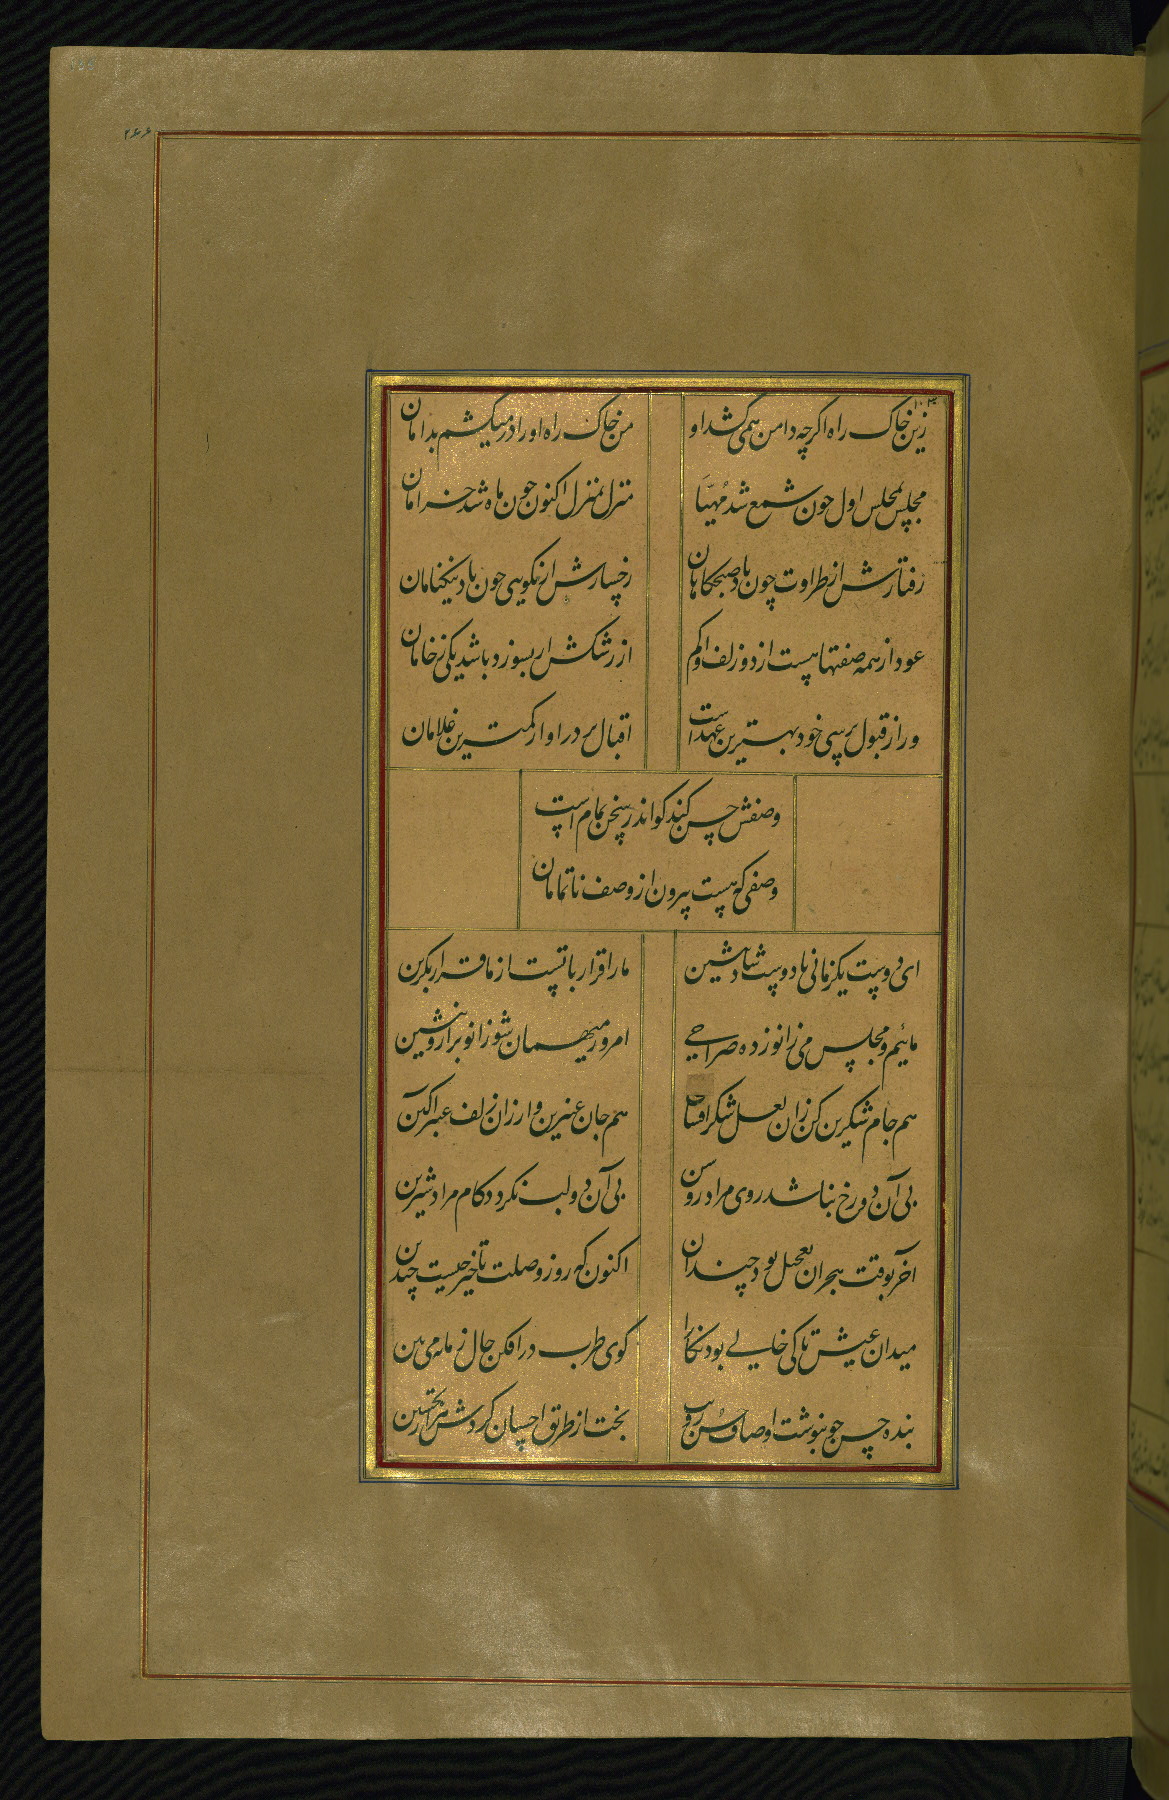 ۲۶۶
زین خاک راه اگرچه دامن همی کشد او
من خاک راه او را در میکشم بدامان
مجلس بمجلس اول چون شمع شد مهیا
منزل بمنزل اکنون چون ماه شد خرامان
رفتارش از طراوت چون باد صبحگاهان
رخسارش از نکویی چون یاد نیکنامان
عود از همه صفتها هست از دو زلف او کم
از رشکش ار بسوزد باشد یکی ز خامان
ور از قبول پرسی خود بهترین عهدست
اقبال بر در او از کمترین غلامان
وصفش حسن کند کو اندر سخن تمام است
وصفی که هست بیرون از وصف ناتمامان
ای دوست یکزمانی با دوست شاد بنشین
ما را قرار با تست از ما قرار بگزین
مائیم و مجلس می زانو زده صراحی
امروز میهمان شو زانو برار و بنشین
هم جام شکرین کن زان لعل شکر افشان
هم جان عنبرین وار زان زلف عنبر اکین
بی آن دو رخ نباشد روی مراد روشن
بی آن دو لب نکردد کام مراد شیرین
آخر بوقت هجران تعجیل بود چندان
اکنون که روز وصلت تأخیر چیست چندین
میدان عیش تا کی خالی بود نگارا
کوی طرب در افکن حال زمانه می بین
بنده حسن چو بنوشت اوصاف حسن رویت
بخت از طریق احسان کردش هزار تحسین